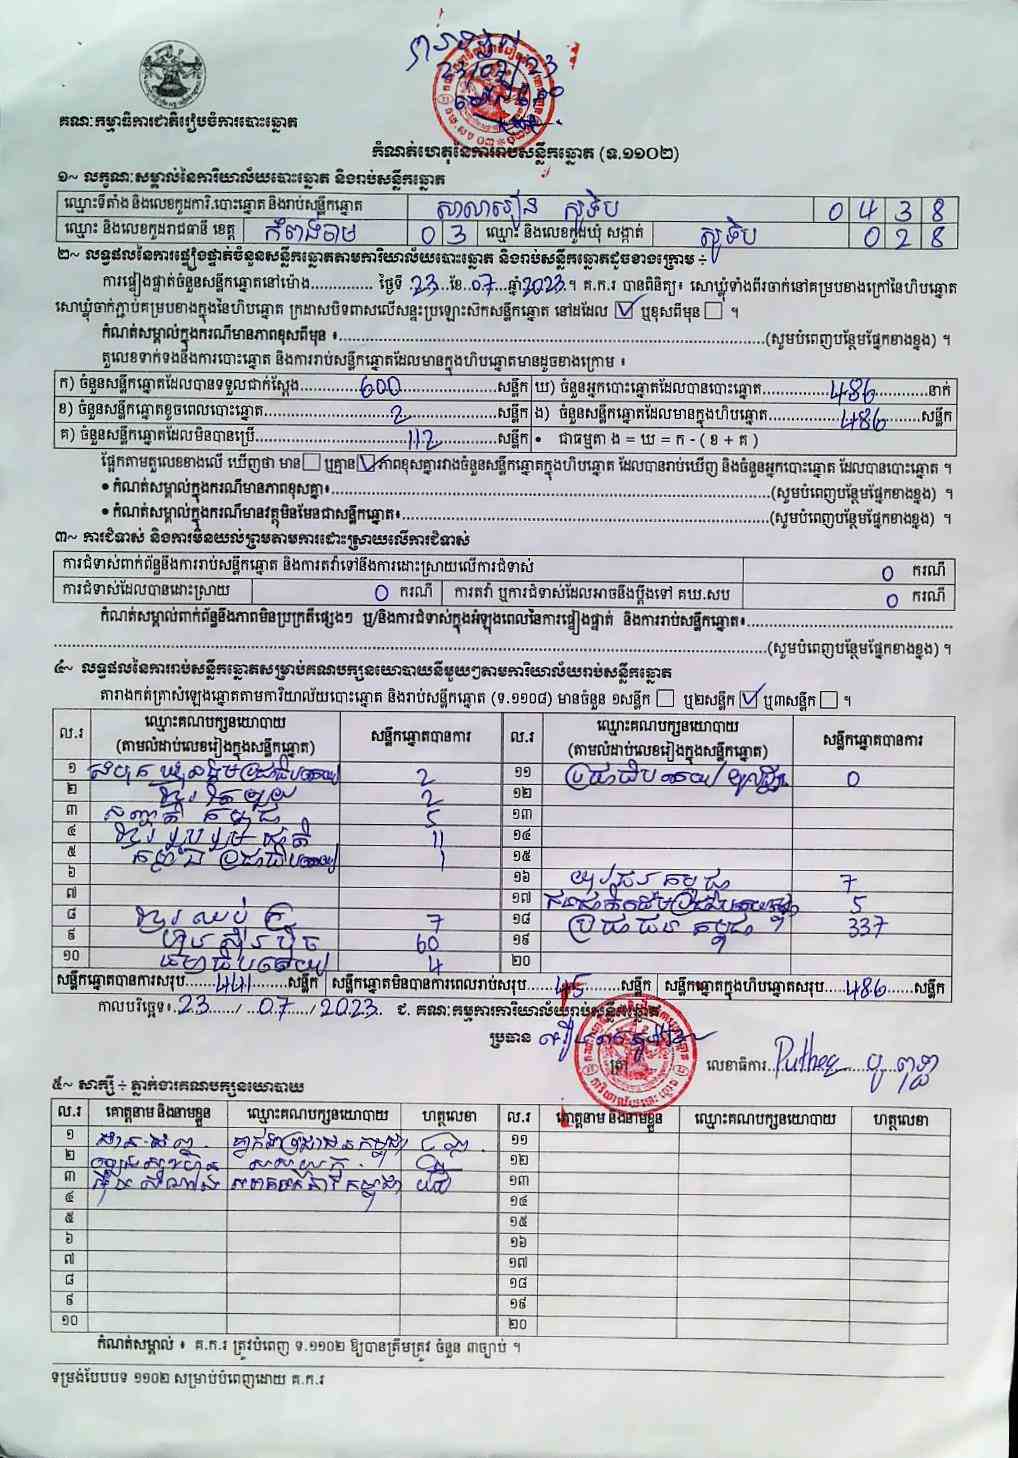 គណៈកម្មាធិការជាតិរៀបចំការបោះឆ្នោត
23/07/23
កំណត់ហេតុនៃការរាប់សន្លឹកឆ្នោត (ទ.១១០២)
១~ លក្ខណៈសម្គាល់នៃការិយាល័យបោះឆ្នោត និងរាប់សន្លឹកឆ្នោត
ឈ្មោះទីតាំង និងលេខកូដការិ.បោះឆ្នោត និងរាប់សន្លឹកឆ្នោត សាលារៀន ស្គូទិប 0 4 3 8
ឈ្មោះ និងលេខកូដរាជធានី ខេត្ត កំពង់ចាម 0 3 ឈ្មោះ និងលេខកូដឃុំ សង្កាត់ 0 2 8
២~ លទ្ធផលនៃការផ្ទៀងផ្ទាត់ចំនួនសន្លឹកឆ្នោតតាមការិយាល័យបោះឆ្នោត និងរាប់សន្លឹកឆ្នោតដូចខាងក្រោម ÷
ការផ្ទៀងផ្ទាត់ចំនួនសន្លឹកឆ្នោតនៅម៉ោង.............. ថ្ងៃទី 23 ខែ 07 ឆ្នាំ 2023 ។ គ.ក.រ បានពិនិត្យ៖ សោឃ្លុំទាំងពីរចាក់នៅគម្របខាងក្រៅនៃហិបឆ្នោត
សោឃ្លុំចាក់ភ្ជាប់គម្របខាងក្នុងនៃហិបឆ្នោត ក្រដាសបិទពាសលើសន្ទះប្រឡោះស៊កសន្លឹកឆ្នោត នៅដដែល ☑ ឬខុសពីមុន ☐ ។
កំណត់សម្គាល់ក្នុងករណីមានភាពខុសពីមុន ៖ (សូមបំពេញបន្ថែមផ្នែកខាងខ្នង) ។
តួលេខទាក់ទងនឹងការបោះឆ្នោត និងការរាប់សន្លឹកឆ្នោតដែលមានក្នុងហិបឆ្នោតមានដូចខាងក្រោម ៖
ក) ចំនួនសន្លឹកឆ្នោតដែលបានទទួលជាក់ស្តែង 600 សន្លឹក ឃ) ចំនួនអ្នកបោះឆ្នោតដែលបានបោះឆ្នោត 486 នាក់
ខ) ចំនួនសន្លឹកឆ្នោតខូចពេលបោះឆ្នោត 2 សន្លឹក ង) ចំនួនសន្លឹកឆ្នោតដែលមានក្នុងហិបឆ្នោត 486 សន្លឹក
គ) ចំនួនសន្លឹកឆ្នោតដែលមិនបានប្រើ 112 សន្លឹក • ជាធម្មតា ង = ឃ = ក - ( ខ + គ )
ផ្អែកតាមតួលេខខាងលើ ឃើញថា មាន ☐ ឬគ្មាន ☑ ភាពខុសគ្នារវាងចំនួនសន្លឹកឆ្នោតក្នុងហិបឆ្នោត ដែលបានរាប់ឃើញ និងចំនួនអ្នកបោះឆ្នោត ដែលបានបោះឆ្នោត ។
• កំណត់សម្គាល់ក្នុងករណីមានភាពខុសគ្នា៖ (សូមបំពេញបន្ថែមផ្នែកខាងខ្នង) ។
• កំណត់សម្គាល់ក្នុងករណីមានវត្ថុមិនមែនជាសន្លឹកឆ្នោត៖ (សូមបំពេញបន្ថែមផ្នែកខាងខ្នង) ។
៣~ ការជំទាស់ និងការមិនយល់ព្រមតាមការដោះស្រាយលើការជំទាស់
ការជំទាស់ពាក់ព័ន្ធនឹងការរាប់សន្លឹកឆ្នោត និងការតវ៉ាទៅនឹងការដោះស្រាយលើការជំទាស់ 0 ករណី
ការជំទាស់ដែលបានដោះស្រាយ 0 ករណី ការតវ៉ា ឬការជំទាស់ដែលអាចនឹងប្តឹងទៅ គឃ.សប 0 ករណី
កំណត់សម្គាល់ពាក់ព័ន្ធនឹងភាពមិនប្រក្រតីផ្សេងៗ ឬ/និងការជំទាស់ក្នុងអំឡុងពេលនៃការផ្ទៀងផ្ទាត់ និងការរាប់សន្លឹកឆ្នោត៖
(សូមបំពេញបន្ថែមផ្នែកខាងខ្នង) ។
៤~ លទ្ធផលនៃការរាប់សន្លឹកឆ្នោតសម្រាប់គណបក្សនយោបាយនីមួយៗតាមការិយាល័យរាប់សន្លឹកឆ្នោត
តារាងកត់ត្រាសំឡេងឆ្នោតតាមការិយាល័យបោះឆ្នោត និងរាប់សន្លឹកឆ្នោត (ទ.១១០៨) មានចំនួន ១សន្លឹក ☐ ឬ២សន្លឹក ☑ ឬ៣សន្លឹក ☐ ។
ល.រ ឈ្មោះគណបក្សនយោបាយ (តាមលំដាប់លេខរៀងក្នុងសន្លឹកឆ្នោត) សន្លឹកឆ្នោតបានការ ល.រ ឈ្មោះគណបក្សនយោបាយ (តាមលំដាប់លេខរៀងក្នុងសន្លឹកឆ្នោត) សន្លឹកឆ្នោតបានការ
១ សំបុកឃ្មុំសង្គមប្រជាធិបតេយ្យ 2 ១១ 0
២ ខ្មែរ 2 ១២
៣ កម្ពុជា 5 ១៣
៤ ខ្មែររួបរួមជាតិ 11 ១៤
៥ ប្រជាធិបតេយ្យ 1 ១៥
៦ ១៦ កម្ពុជា 7
៧ ១៧ 5
៨ ខ្មែរឈប់ក្រ 7 ១៨ ប្រជាជនកម្ពុជា 337
៩ ហ៊្វុនស៊ិនប៉ិច 60 ១៩
១០ ធម្មាធិបតេយ្យ 4 ២០
សន្លឹកឆ្នោតបានការសរុប 441 សន្លឹក សន្លឹកឆ្នោតមិនបានការពេលរាប់សរុប 45 សន្លឹក សន្លឹកឆ្នោតក្នុងហិបឆ្នោតសរុប 486 សន្លឹក
កាលបរិច្ឆេទ៖ 23 / 07 / 2023 ជ. គណៈកម្មការការិយាល័យរាប់សន្លឹកឆ្នោត
ប្រធាន
លេខាធិការ Puthea
៥~ សាក្សី ÷ ភ្នាក់ងារគណបក្សនយោបាយ
ល.រ គោត្តនាម និងនាមខ្លួន ឈ្មោះគណបក្សនយោបាយ ហត្ថលេខា ល.រ គោត្តនាម និងនាមខ្លួន ឈ្មោះគណបក្សនយោបាយ ហត្ថលេខា
១ ១១
២ ១២
៣ ១៣
៤ ១៤
៥ ១៥
៦ ១៦
៧ ១៧
៨ ១៨
៩ ១៩
១០ ២០
កំណត់សម្គាល់ ៖ គ.ក.រ ត្រូវបំពេញ ទ.១១០២ ឱ្យបានត្រឹមត្រូវ ចំនួន ៣ច្បាប់ ។
ទម្រង់បែបបទ ១១០២ សម្រាប់បំពេញដោយ គ.ក.រ